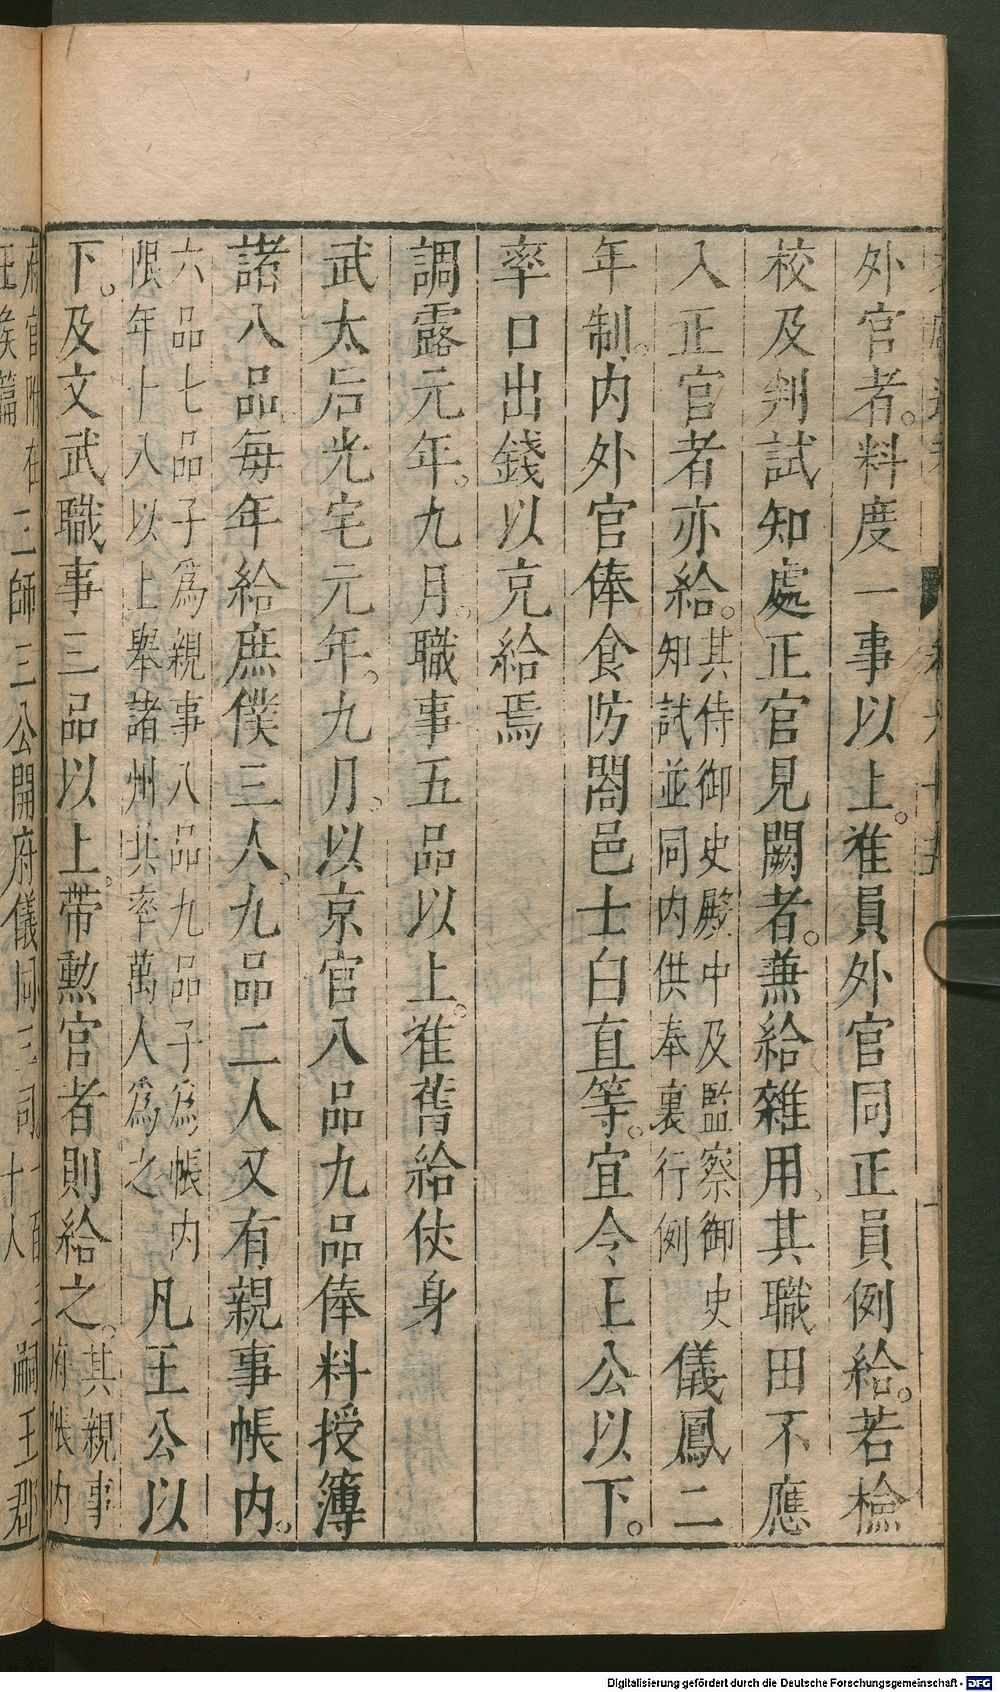 外官者。料度一事以上。准員外官同正員例給。若檢
校及判試知處正官見闕者。兼給雜用。其職田不應
入正官者亦給。其侍御史殿中及監察御史
知試並同內供奉裏行例
儀鳳二
年制。內外官俸食防閤邑士白直等。宜令王公以下。
率口出錢以充給焉
調露元年。九月。職事五品以上。准舊給仗身
武太后光宅元年。九月。以京官八品九品俸料授簿
諸八品每年給庶僕三人。九品二人又有親事帳內。
六品七品子為親事八品九品子為帳內
限年十八以上舉諸州共率萬人為之
凡王公以
下。及文武職事三品以上。帶勲官者則給之。其親事
府帳內
府官附在三師三公開府儀同三司
王侯篇
十人
嗣王郡
Digitalisierung gefördert durch die Deutsche Forschungsgemeinschaft - DFG